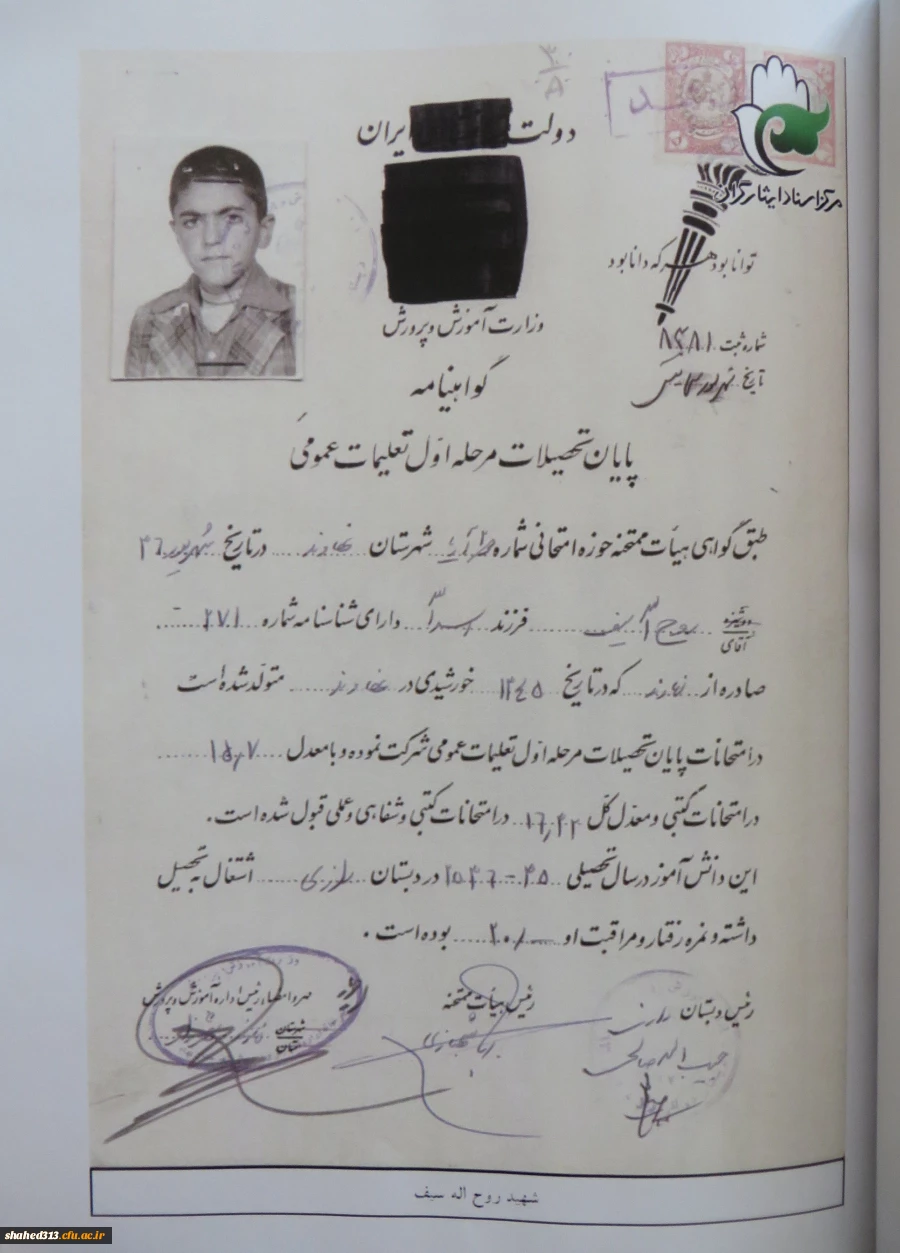 دولت ایران
مرکز اسناد ایثارگران
توانا بود هر که دانا بود
وزارت آموزش و پرورش
شماره ثبت
تاریخ شهریور
گواهینامه
پایان تحصیلات مرحله اوّل تعلیمات عمومی
طبق گواهی هیأت ممتحنه حوزه امتحانی شماره شهرستان نهاوند در تاریخ شهریور ۴۶
دوشیزه
آقای روح الله سیف فرزند اسدالله دارای شناسنامه شماره ۲۷۱
صادره از نهاوند که در تاریخ خورشیدی در نهاوند متولّد شده است
در امتحانات پایان تحصیلات مرحله اوّل تعلیمات عمومی شرکت نموده و با معدل
در امتحانات کتبی و معدّل کلّ در امتحانات کتبی و شفاهی و عملی قبول شده است.
این دانش آموز در سال تحصیلی در دبستان رازی اشتغال به تحصیل
داشته و نمره رفتار و مراقبت او ۲۰ بوده است.
رئیس دبستان رازی
حبیب اله صالحی
رئیس هیأت ممتحنه
مهر و امضاء رئیس اداره آموزش و پرورش
شهرستان
شهید روح اله سیف
shahed313.cfu.ac.ir